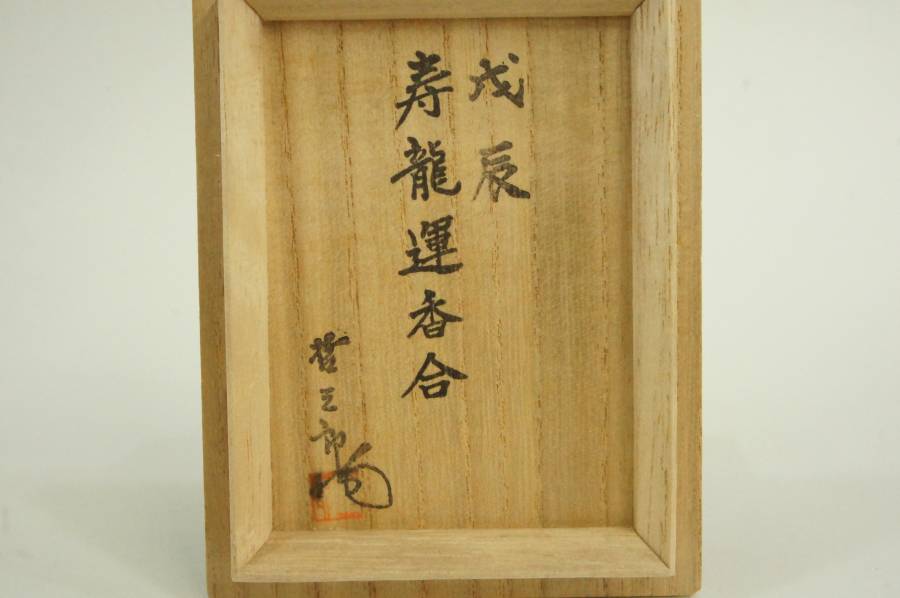 戊辰
寿龍運香合
哲三郎